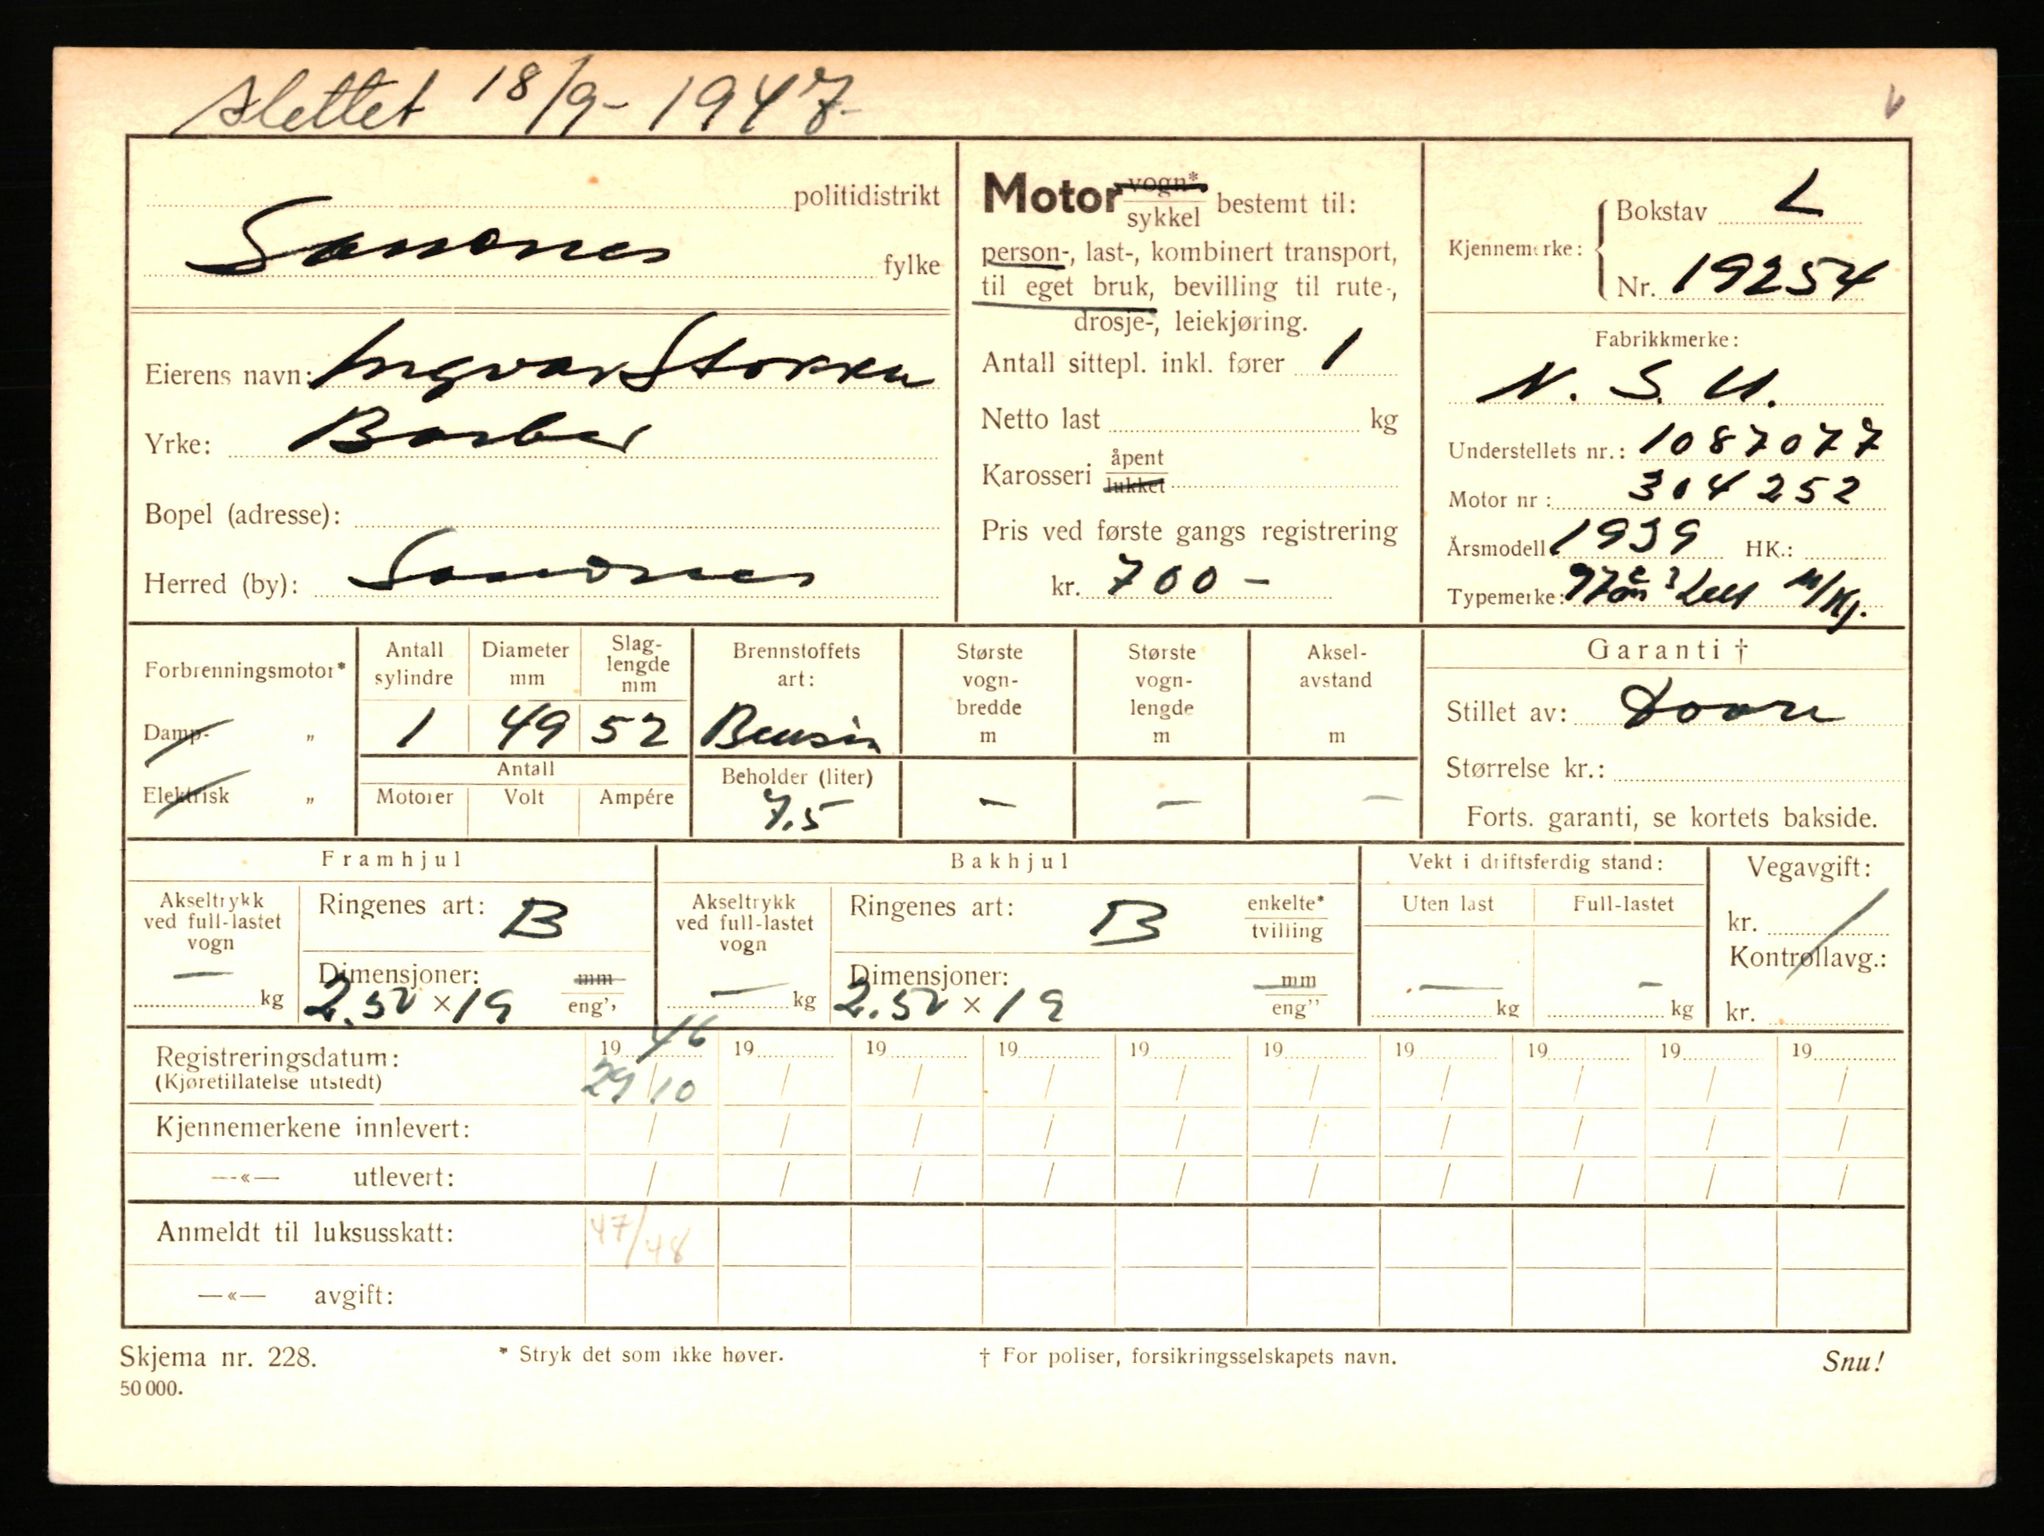 slettet 18/9- 1947-
politidistrikt
Sandnes fylke
Eierens navn: Ingvar Stokka
Yrke: Barber
Bopel (adresse):
Herred (by): Sandnes
Motor vogn*
sykkel bestemt til:
person-, last-, kombinert transport,
til eget bruk, bevilling til rute-,
drosje-, leiekjøring.
Antall sittepl. inkl. fører 1
Netto last kg
Karosseri åpent
lukket
Pris ved første gangs registrering
kr. 700 -
Kjennemerke: Bokstav L
Nr. 19254
Fabrikkmerke:
N. S. U.
Understellets nr.: 1087077
Motor nr: 304252
Årsmodell 1939 HK.:
Typemerke: 97 cm3 Lett M/Kj.
Forbrenningsmotor*
Damp- „
Elektrisk „
Antall sylindre
1
Diameter mm
49
Slag-lengde mm
52
Antall
Motorer Volt Ampére
Brennstoffets art:
Bensin
Beholder (liter)
7,5
Største vogn-bredde m
—
Største vogn-lengde m
—
Aksel-avstand m
—
Garanti †
Stillet av:
Størrelse kr.:
Forts. garanti, se kortets bakside.
Framhjul
Akseltrykk ved full-lastet vogn
— kg
Ringenes art: B
Dimensjoner: mm
2.50 × 19 eng''
Bakhjul
Akseltrykk ved full-lastet vogn
— kg
Ringenes art: B enkelte*
tvilling
Dimensjoner: mm
2.50 × 19 eng''
Vekt i driftsferdig stand:
Uten last Full-lastet
— kg — kg
Vegavgift:
kr.
Kontrollavg.:
kr.
Registreringsdatum: 19 46 19 19 19 19 19 19 19 19 19
(Kjøretillatelse utstedt) 29/10 / / / / / / / / /
Kjennemerkene innlevert: / / / / / / / / / /
—«— utlevert: / / / / / / / / / /
Anmeldt til luksusskatt: 47/48
—«— avgift:
Skjema nr. 228. * Stryk det som ikke høver. † For poliser, forsikringsselskapets navn. Snu!
50 000.